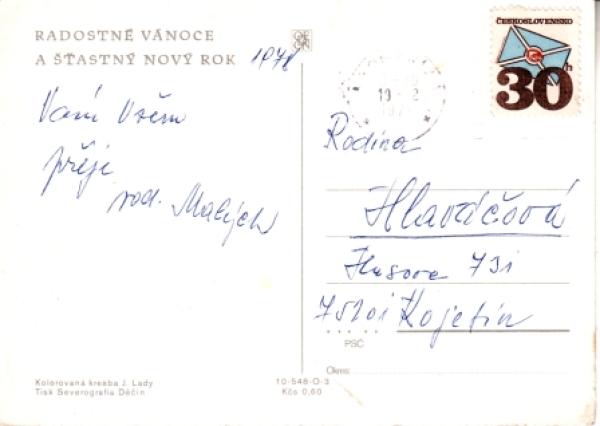 RADOSTNÉ VÁNOCE
A ŠŤASTNÝ NOVÝ ROK 1978
Vám Všem
přeje
rod. Malých
Kolorovaná kresba J. Lady
Tisk Severografia Děčín
10-548-O-3
Kčs 0,60
ČESKOSLOVENSKO
30h
Rodina
Hlaváčová
Husova 731
75201 Kojetín
PSČ
Okres: